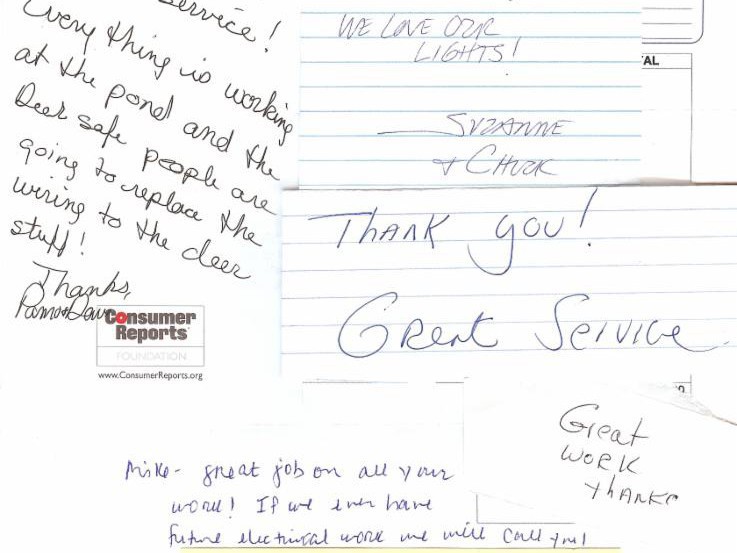 Service!
Every thing is working
at the pond and the
Deer safe people are
going to replace the
wiring to the deer
stuff!
Thanks,
Consumer
Reports
FOUNDATION
www.ConsumerReports.org
WE LOVE OUR
LIGHTS!
SUZANNE
+ CHUCK
AL
THANK YOU!
Great Service
Great
WORK
THANKS
Mike- great job on all your
work! If we ever have
future electrical work we will call you!